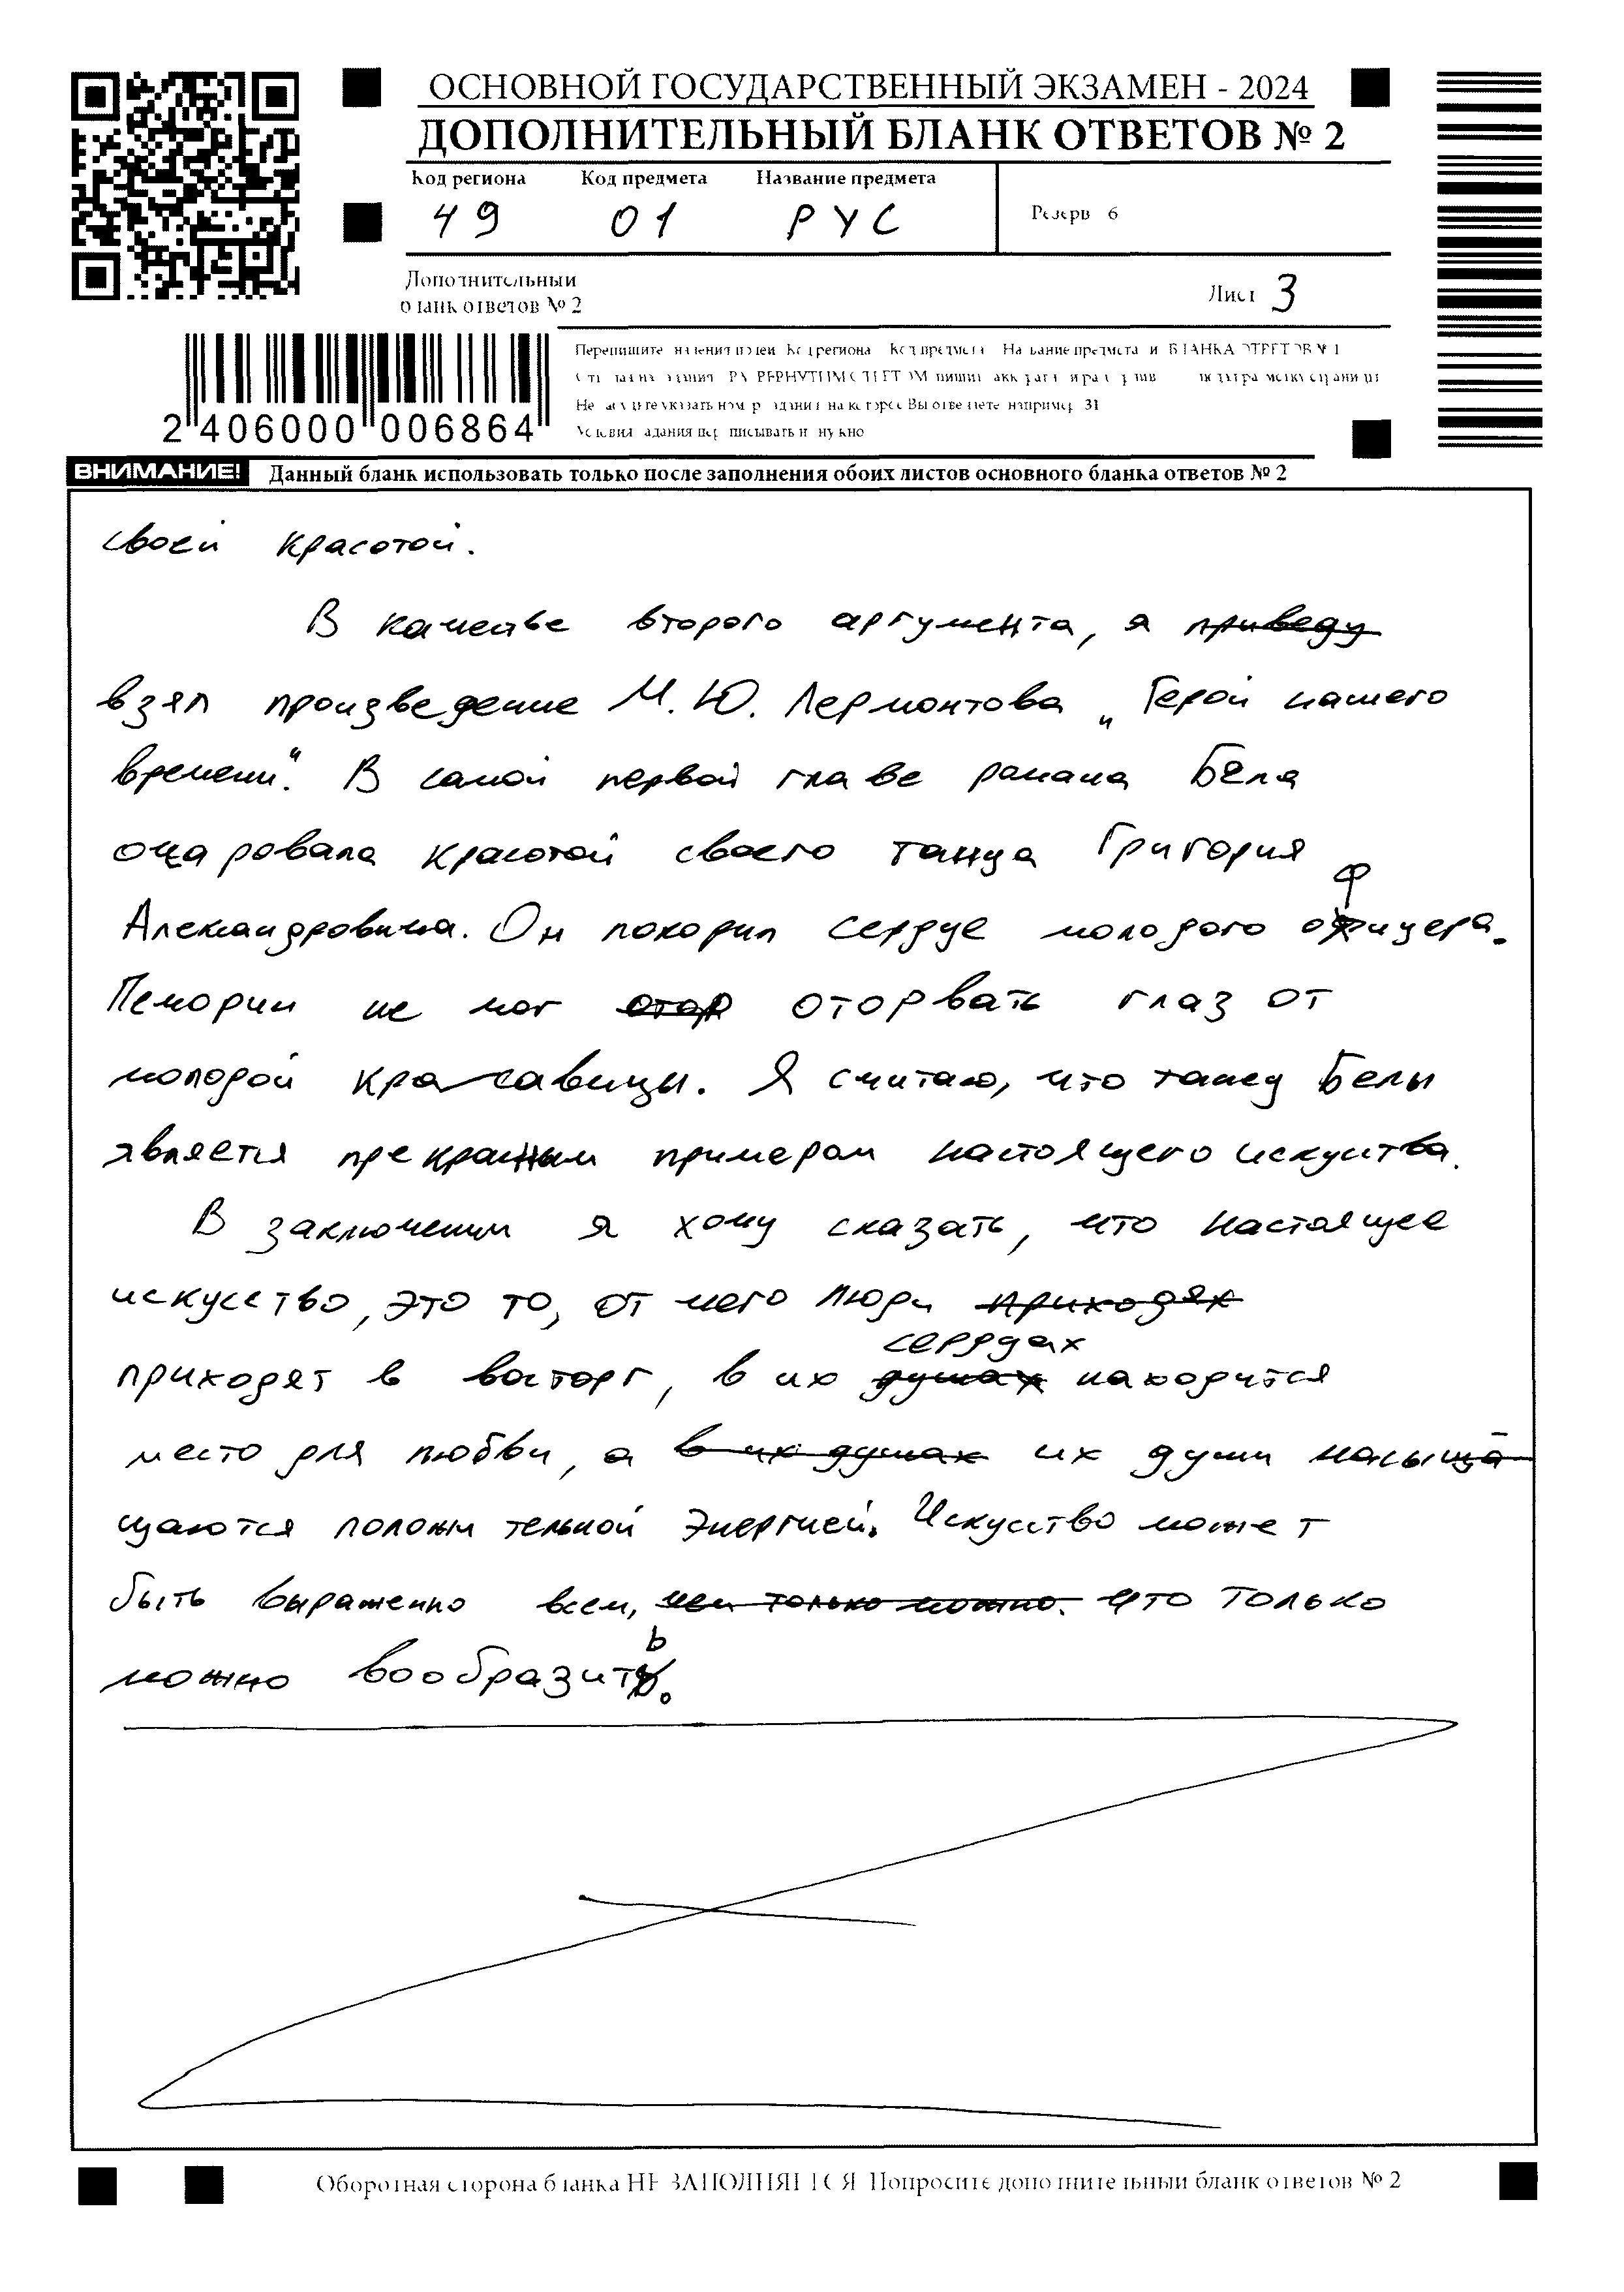 ОСНОВНОЙ ГОСУДАРСТВЕННЫЙ ЭКЗАМЕН - 2024
ДОПОЛНИТЕЛЬНЫЙ БЛАНК ОТВЕТОВ № 2
Код региона Код предмета Название предмета
49 01 РУС
Резерв 6
Дополнительный
бланк ответов № 2
Лист 3
2 406000 006864
ВНИМАНИЕ! Данный бланк использовать только после заполнения обоих листов основного бланка ответов № 2
своей красотой.
В качестве второго аргумента, я приведу
взял произведение М. Ю. Лермонтова „Герой нашего
времени“. В самой первой главе романа Бэла
очаровала красотой своего танца Григория
Александровича. Он покорил сердце молодого офицера.
Печорин не мог отор оторвать глаз от
молодой красавицы. Я считаю, что танец Белы
является прекрасным примером настоящего искуства.
В заключении я хочу сказать, что настоящее
искусство, это то, от чего люди приходях
приходят в восторг, в их душах сердцах находится
место для любви, а в их душах их души насыща
щаются положительной энергией. Искусство может
быть выраженно всем, чем только можно. что только
можно вообразить.
Оборотная сторона бланка НЕ ЗАПОЛНЯЕТСЯ Попросите дополнительный бланк ответов № 2